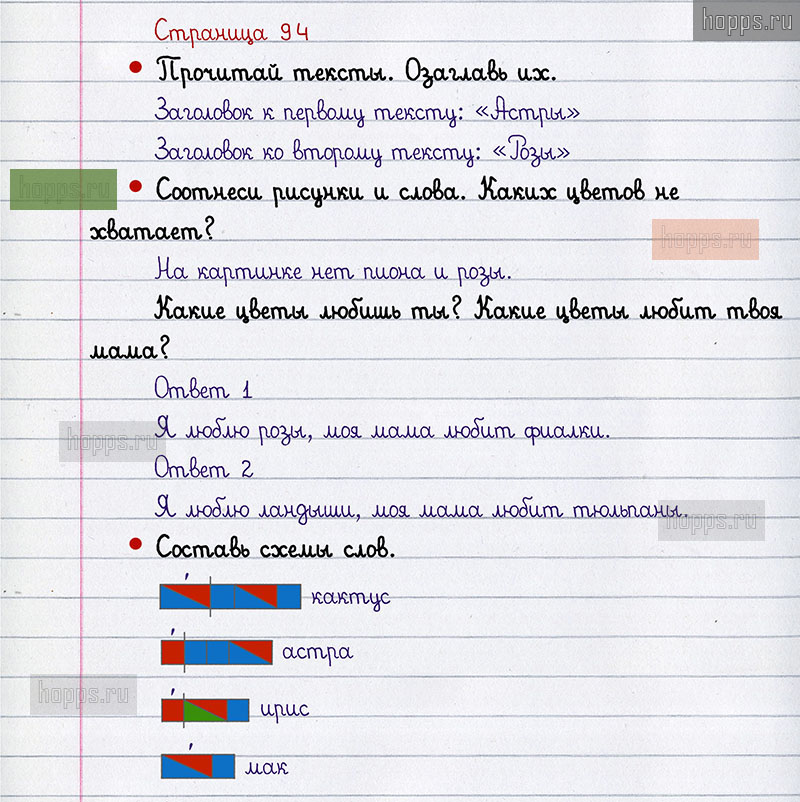 hopps.ru
Страница 94
• Прочитай тексты. Озаглавь их.
Заголовок к первому тексту: «Астры»
Заголовок ко второму тексту: «Розы»
hopps.ru
• Соотнеси рисунки и слова. Каких цветов не
хватает?
hopps.ru
На картинке нет пиона и розы.
Какие цветы любишь ты? Какие цветы любит твоя
мама?
Ответ 1
hopps.ru
Я люблю розы, моя мама любит фиалки.
Ответ 2
Я люблю ландыши, моя мама любит тюльпаны.
hopps.ru
• Составь схемы слов.
кактус
астра
hopps.ru
ирис
мак